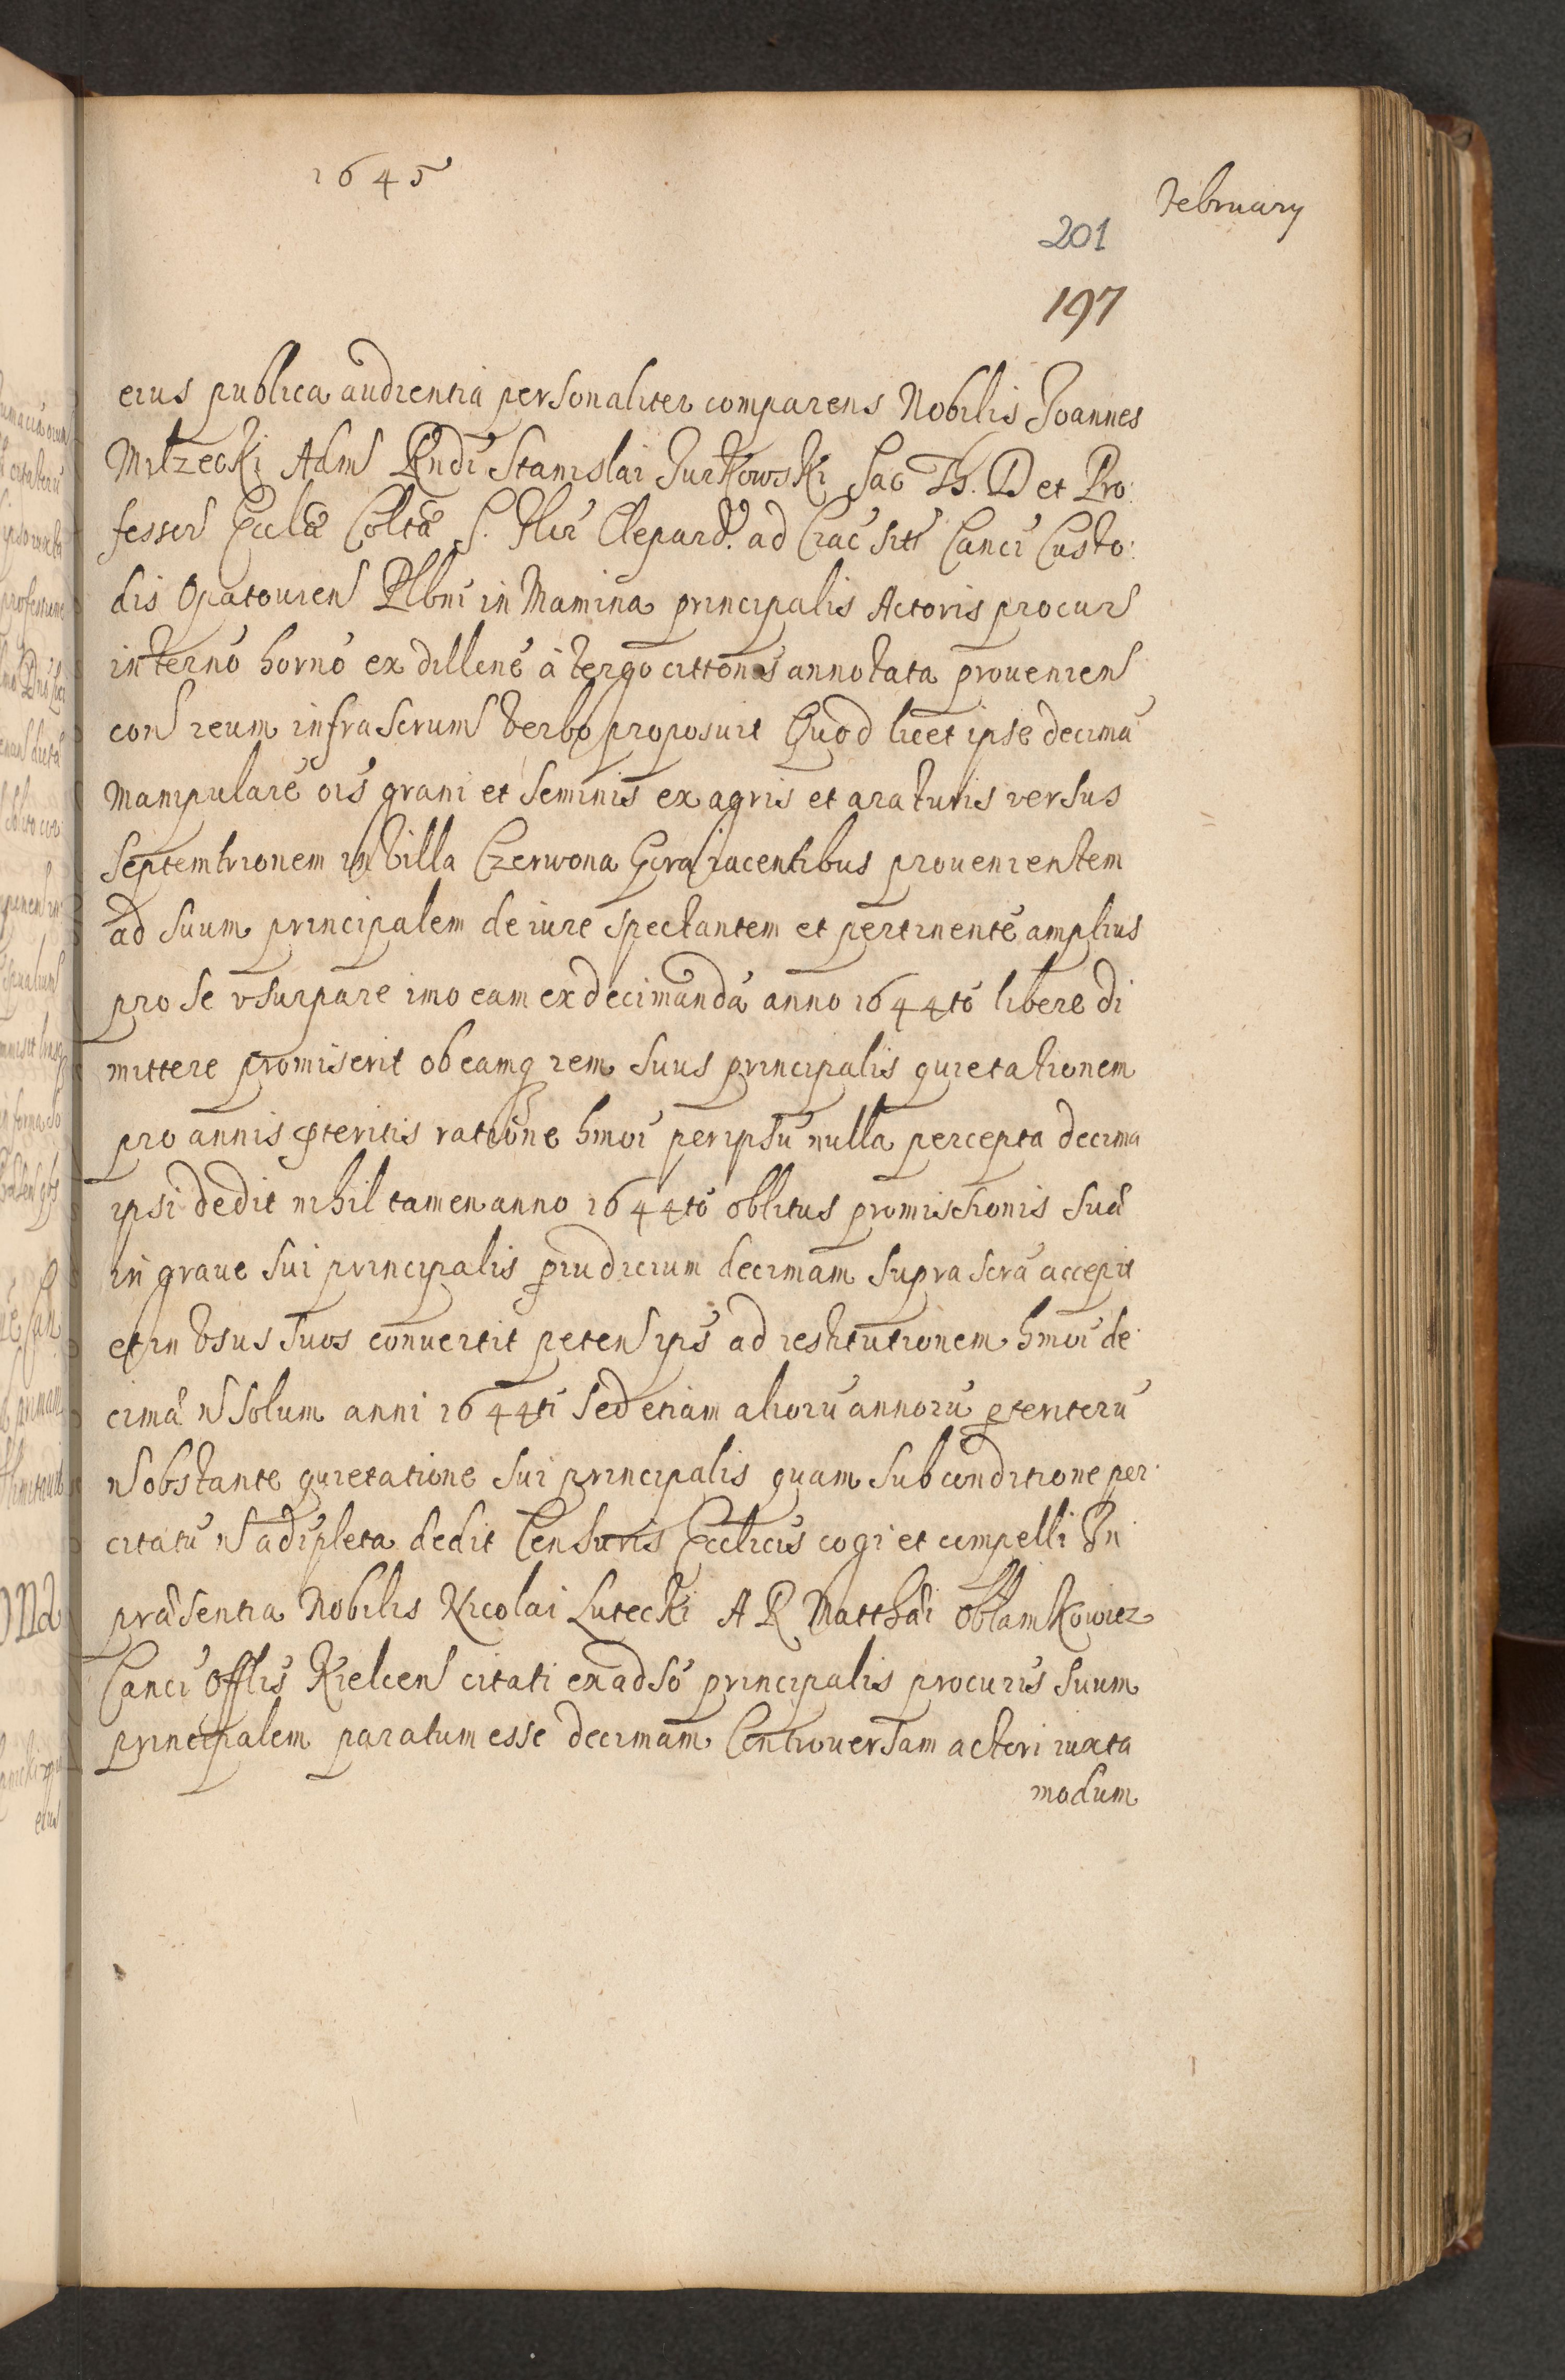 1645
February
201
197
eius publica audientia personaliter comparens Nobilis Joannes
Milzecki Adm Rndi Stanislai Jurkowski Sac Th. D et Pro:
fessor Eccla Colta S. Flir Clepard. ad Crac sit Canci Custo:
dis Opatouien Plbni in Mamina principalis Actoris procur
in termo horno ex dillone à tergo cittonis annotata prouenien
con reum infrascrum verbo proposuit Quod licet ipse decima
manipulare ois grani et seminis ex agris et araturis versus
septemtrionem in Villa Czerwona Gora iacentibus prouenientem
ad suum principalem de iure spectantem et pertinente amplius
pro se vsurpare imo eam exdecimanda anno 1644to libere di
mittere promiserit ob eamq rem suus principalis quietationem
pro annis pteritis ratione hmoi per ipsu nulla percepta decima
ipsi dedit nihil tamen anno 1644to oblitus promissionis sua
in graue sui principalis piudicium decimam suprascra accepit
et in Vsus suos conuertit peten ips ad restitutionem hmoi de
cima n solum anni 1644ti sed etiam alioru annoru pteriteru
n obstante quietatione sui principalis quam sub conditione per
citatu n adipleta dedit Censuris Ecclicis cogi et compelli In
præsentia Nobilis Nicolai Lutecki A R Matthæi Oblamkowicz
Canci Offlis Kielcen citati ex adso principalis procuris suum
principalem paratum esse decimam Controuersam actori iuxta
modum